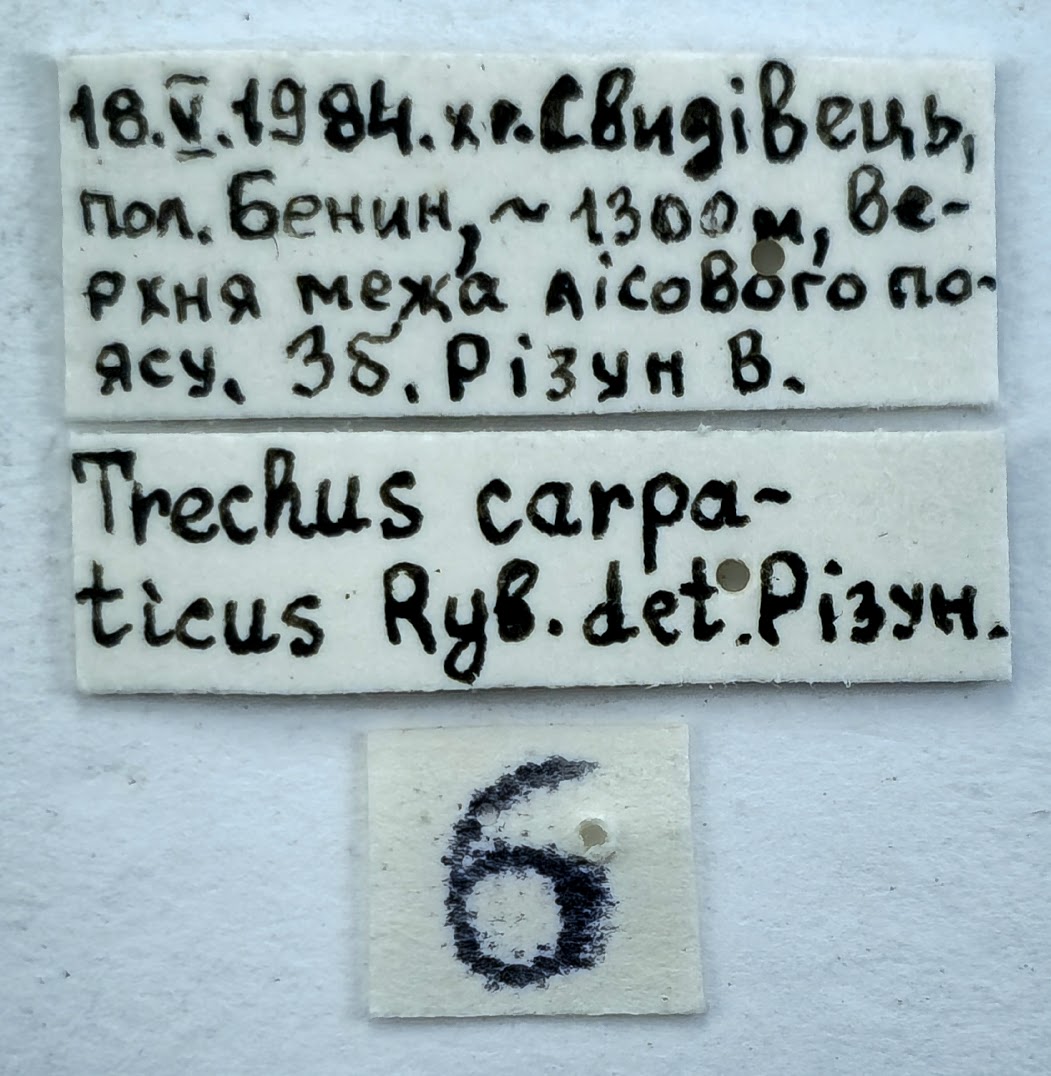 18.V.1984. хр. Свидівець,
пол. Бенин, ~ 1300м, Ве-
рхня межа лісового по-
ясу. Зб. Різун В.
Trechus carpa-
ticus Ryb. det. Різун.
6